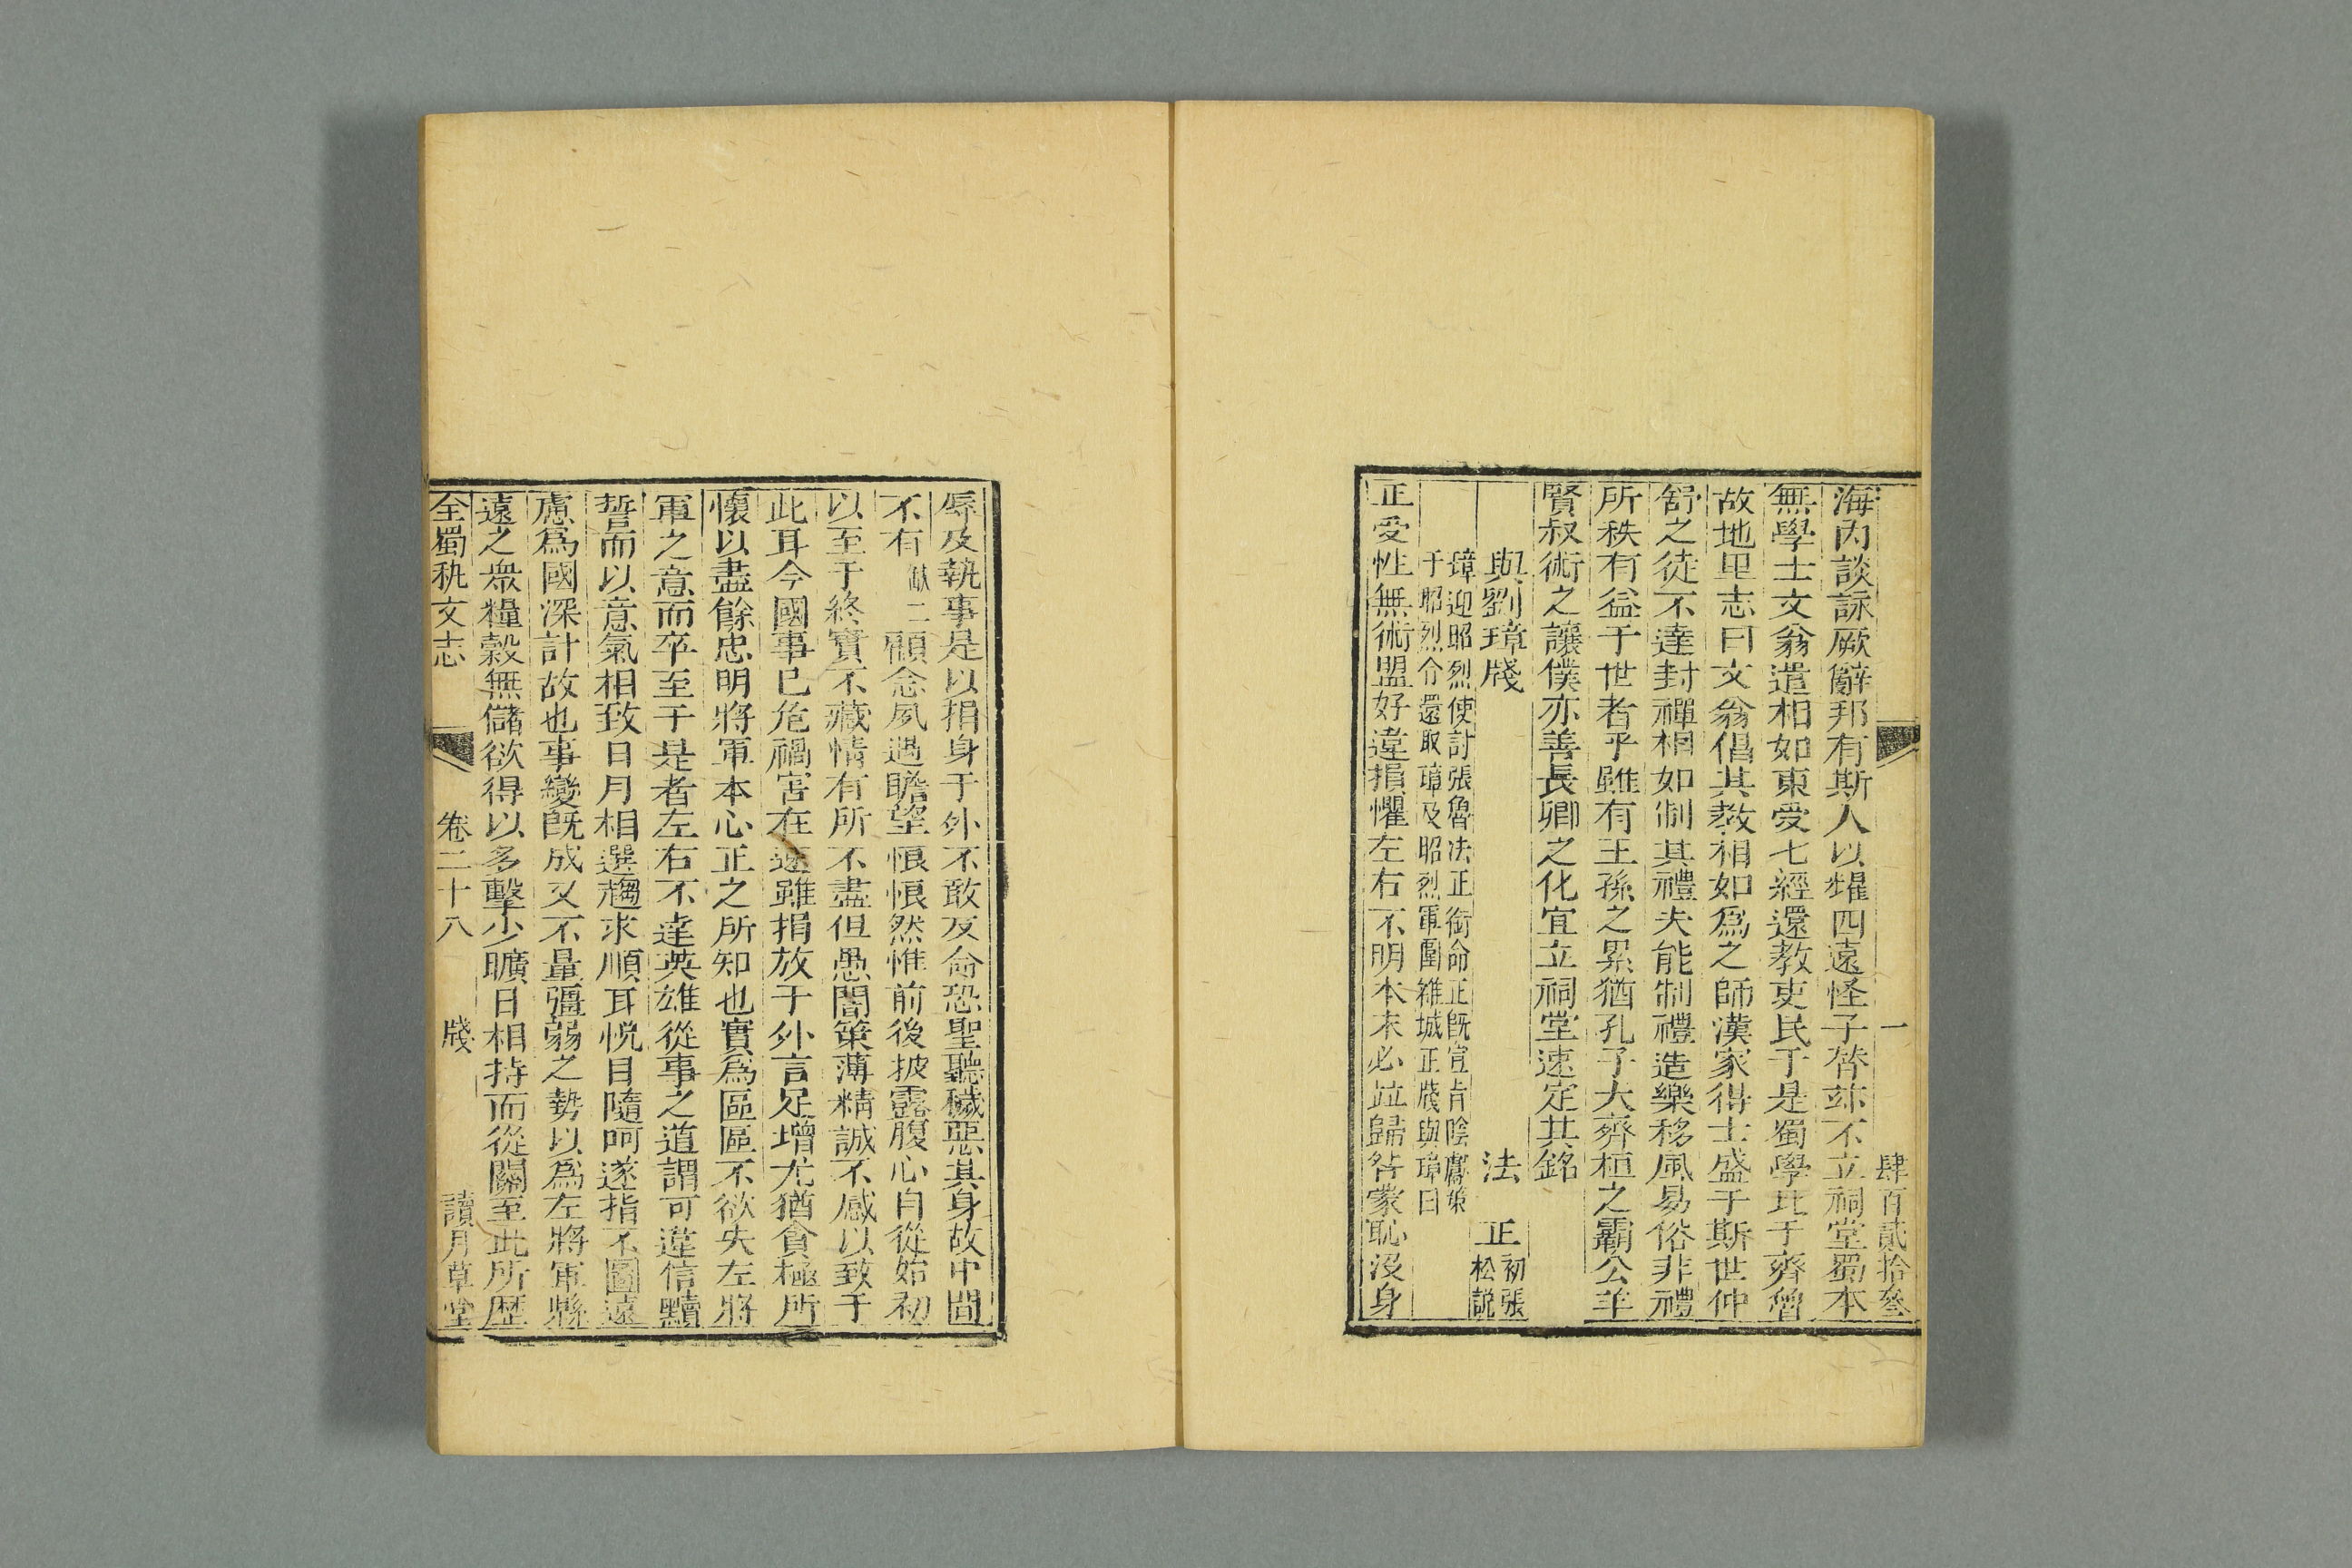 一　肆百貳拾叁
海内談詠厥辭邦有斯人以燿四遠怪子替玆不立祠堂蜀本
無學士文翁遣相如東受七經還教吏民于是蜀學比于齊魯
故地里志曰文翁倡其教相如爲之師漢家得士盛于斯世仲
舒之徒不達封禪相如制其禮夫能制禮造樂移風易俗非禮
所秩有益于世者乎雖有王孫之累猶孔子大齊桓之霸公羊
賢叔術之讓僕亦善長卿之化宜立祠堂速定其銘
與劉璋牋　法　正 初張
松說
璋迎昭烈使討張魯法正銜命正旣宣旨陰獻策
于昭烈令還取璋及昭烈軍圍雒城正牋與璋曰
正受性無術盟好違損懼左右不明本末必並歸咎蒙恥沒身
辱及執事是以捐身于外不敢反命恐聖聽穢惡其身故中間
不有缺二顧念夙遇瞻望悢悢然惟前後披露腹心自從始初
以至于終實不藏情有所不盡但愚闇策薄精誠不感以致于
此耳今國事已危禍害在速雖捐放于外言足增尤猶貪極所
懷以盡餘忠明將軍本心正之所知也實爲區區不欲失左將
軍之意而卒至于是者左右不達英雄從事之道謂可違信黷
誓而以意氣相致日月相選趨求順耳悅目隨呵遂指不圖遠
慮爲國深計故也事變旣成又不量彊弱之勢以爲左將軍縣
遠之衆糧穀無儲欲得以多擊少曠日相持而從關至此所歷
全蜀秇文志　卷二十八　牋　讀月草堂